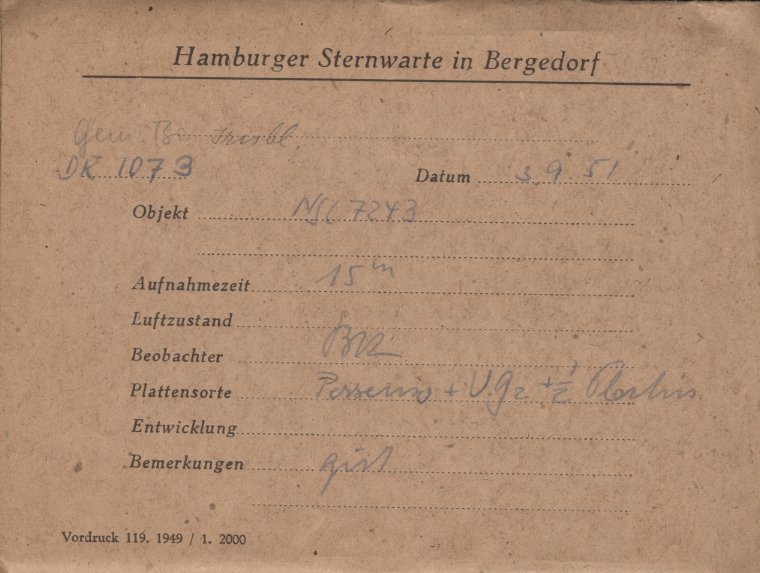 Hamburger Sternwarte in Bergedorf
DR 1073
Datum 3.9.51
Objekt NGC 7243
Aufnahmezeit 15 m
Luftzustand
Beobachter
Plattensorte + 1/2
Entwicklung
Bemerkungen gut
Vordruck 119. 1949 / 1. 2000